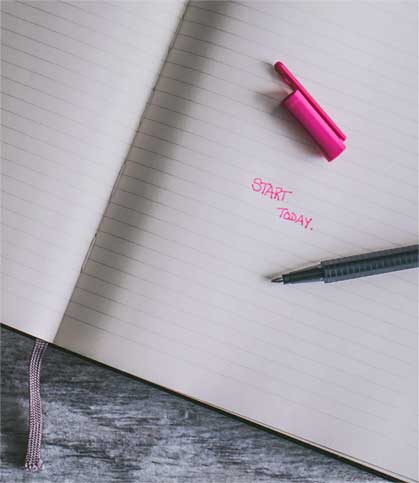 START
TODAY.